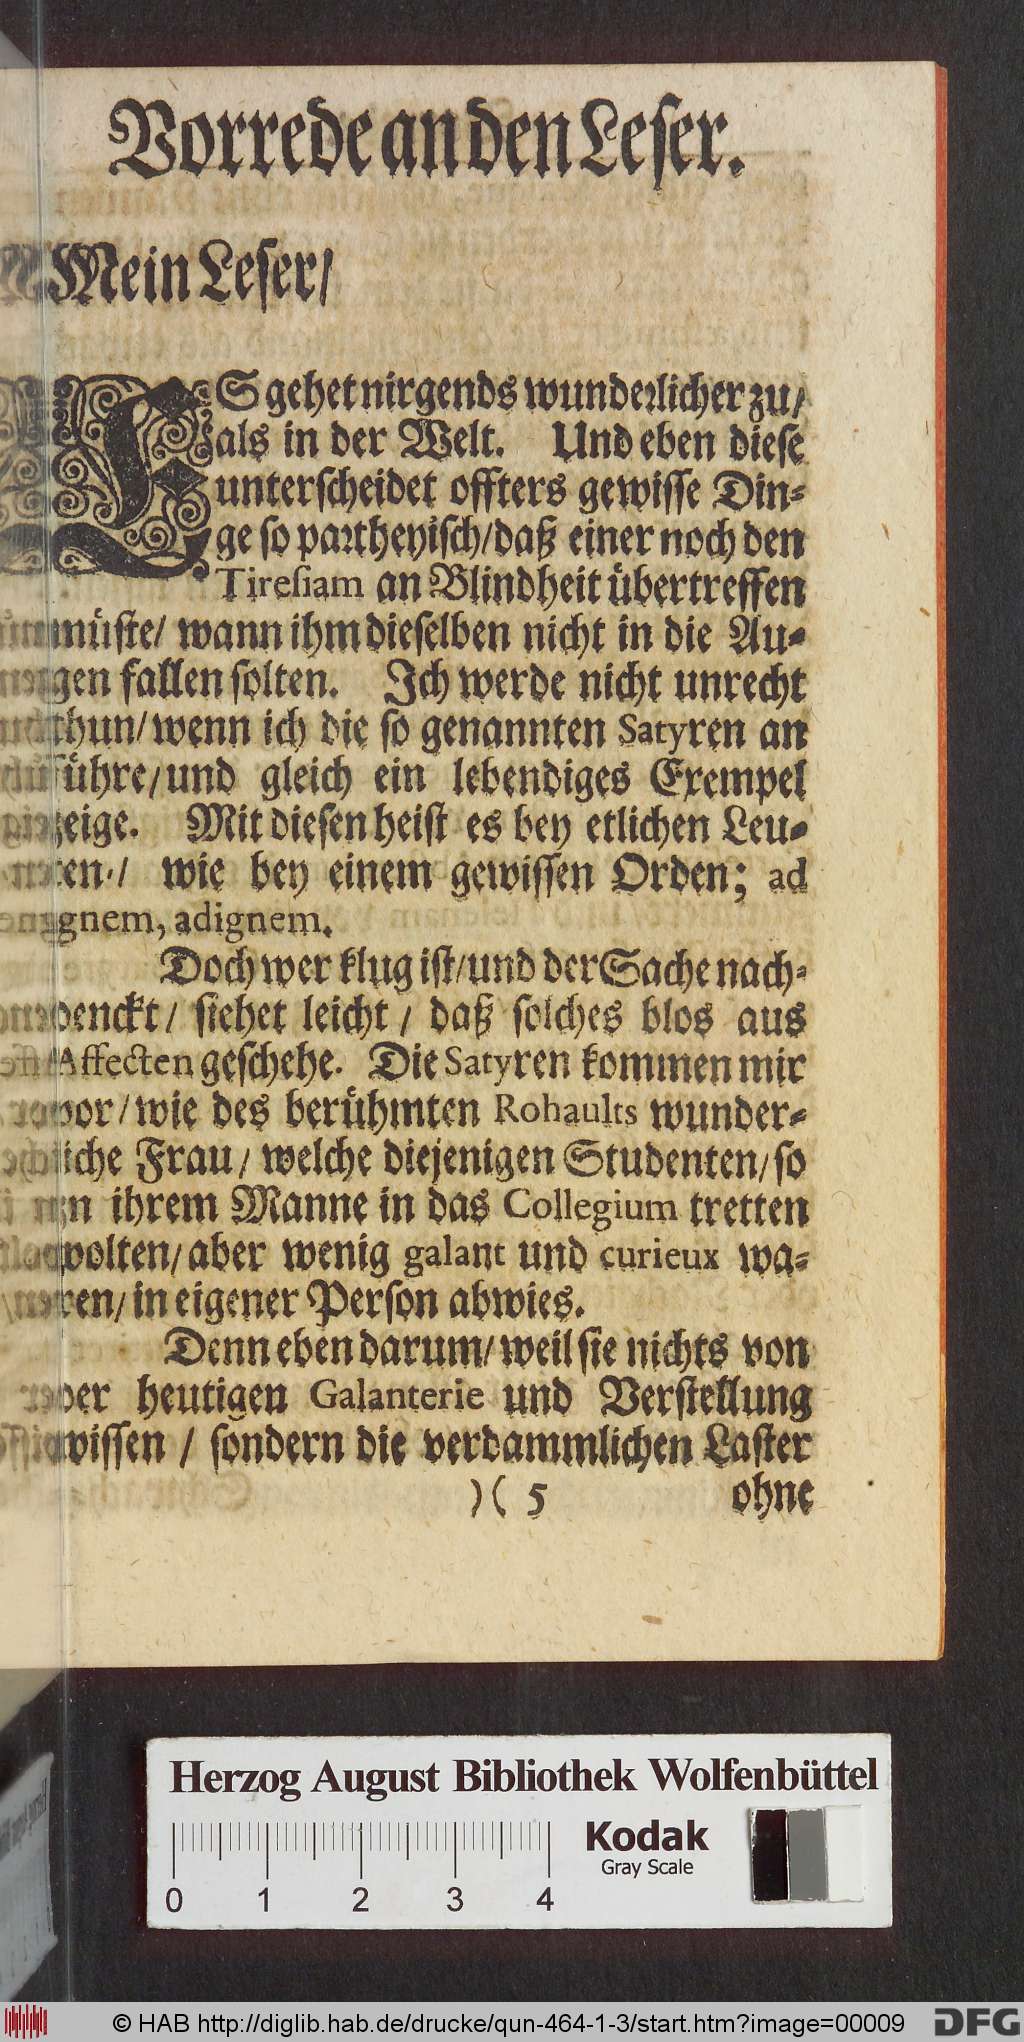 Vorrede an den Leser.
Mein Leser/
ES gehet nirgends wunderlicher zu/
als in der Welt. Und eben diese
unterscheidet offters gewisse Din-
ge so partheyisch/daß einer noch den
Tiresiam an Blindheit übertreffen
müste/ wann ihm dieselben nicht in die Au-
gen fallen solten. Ich werde nicht unrecht
thun/wenn ich die so genannten Satyren an
führe/und gleich ein lebendiges Exempel
zeige. Mit diesen heist es bey etlichen Leu-
ten/ wie bey einem gewissen Orden; ad
ignem, ad ignem.
Doch wer klug ist/und der Sache nach-
denckt/ siehet leicht/ daß solches blos aus
Affecten geschehe. Die Satyren kommen mir
vor/wie des berühmten Rohaults wunder-
liche Frau/ welche diejenigen Studenten/so
zu ihrem Manne in das Collegium tretten
wolten/aber wenig galant und curieux wa-
ren/in eigener Person abwies.
Denn eben darum/weil sie nichts von
der heutigen Galanterie und Verstellung
wissen / sondern die verdammlichen Laster
)( 5 ohne
Herzog August Bibliothek Wolfenbüttel
Kodak
Gray Scale
0 1 2 3 4
© HAB http://diglib.hab.de/drucke/qun-464-1-3/start.htm?image=00009
DFG